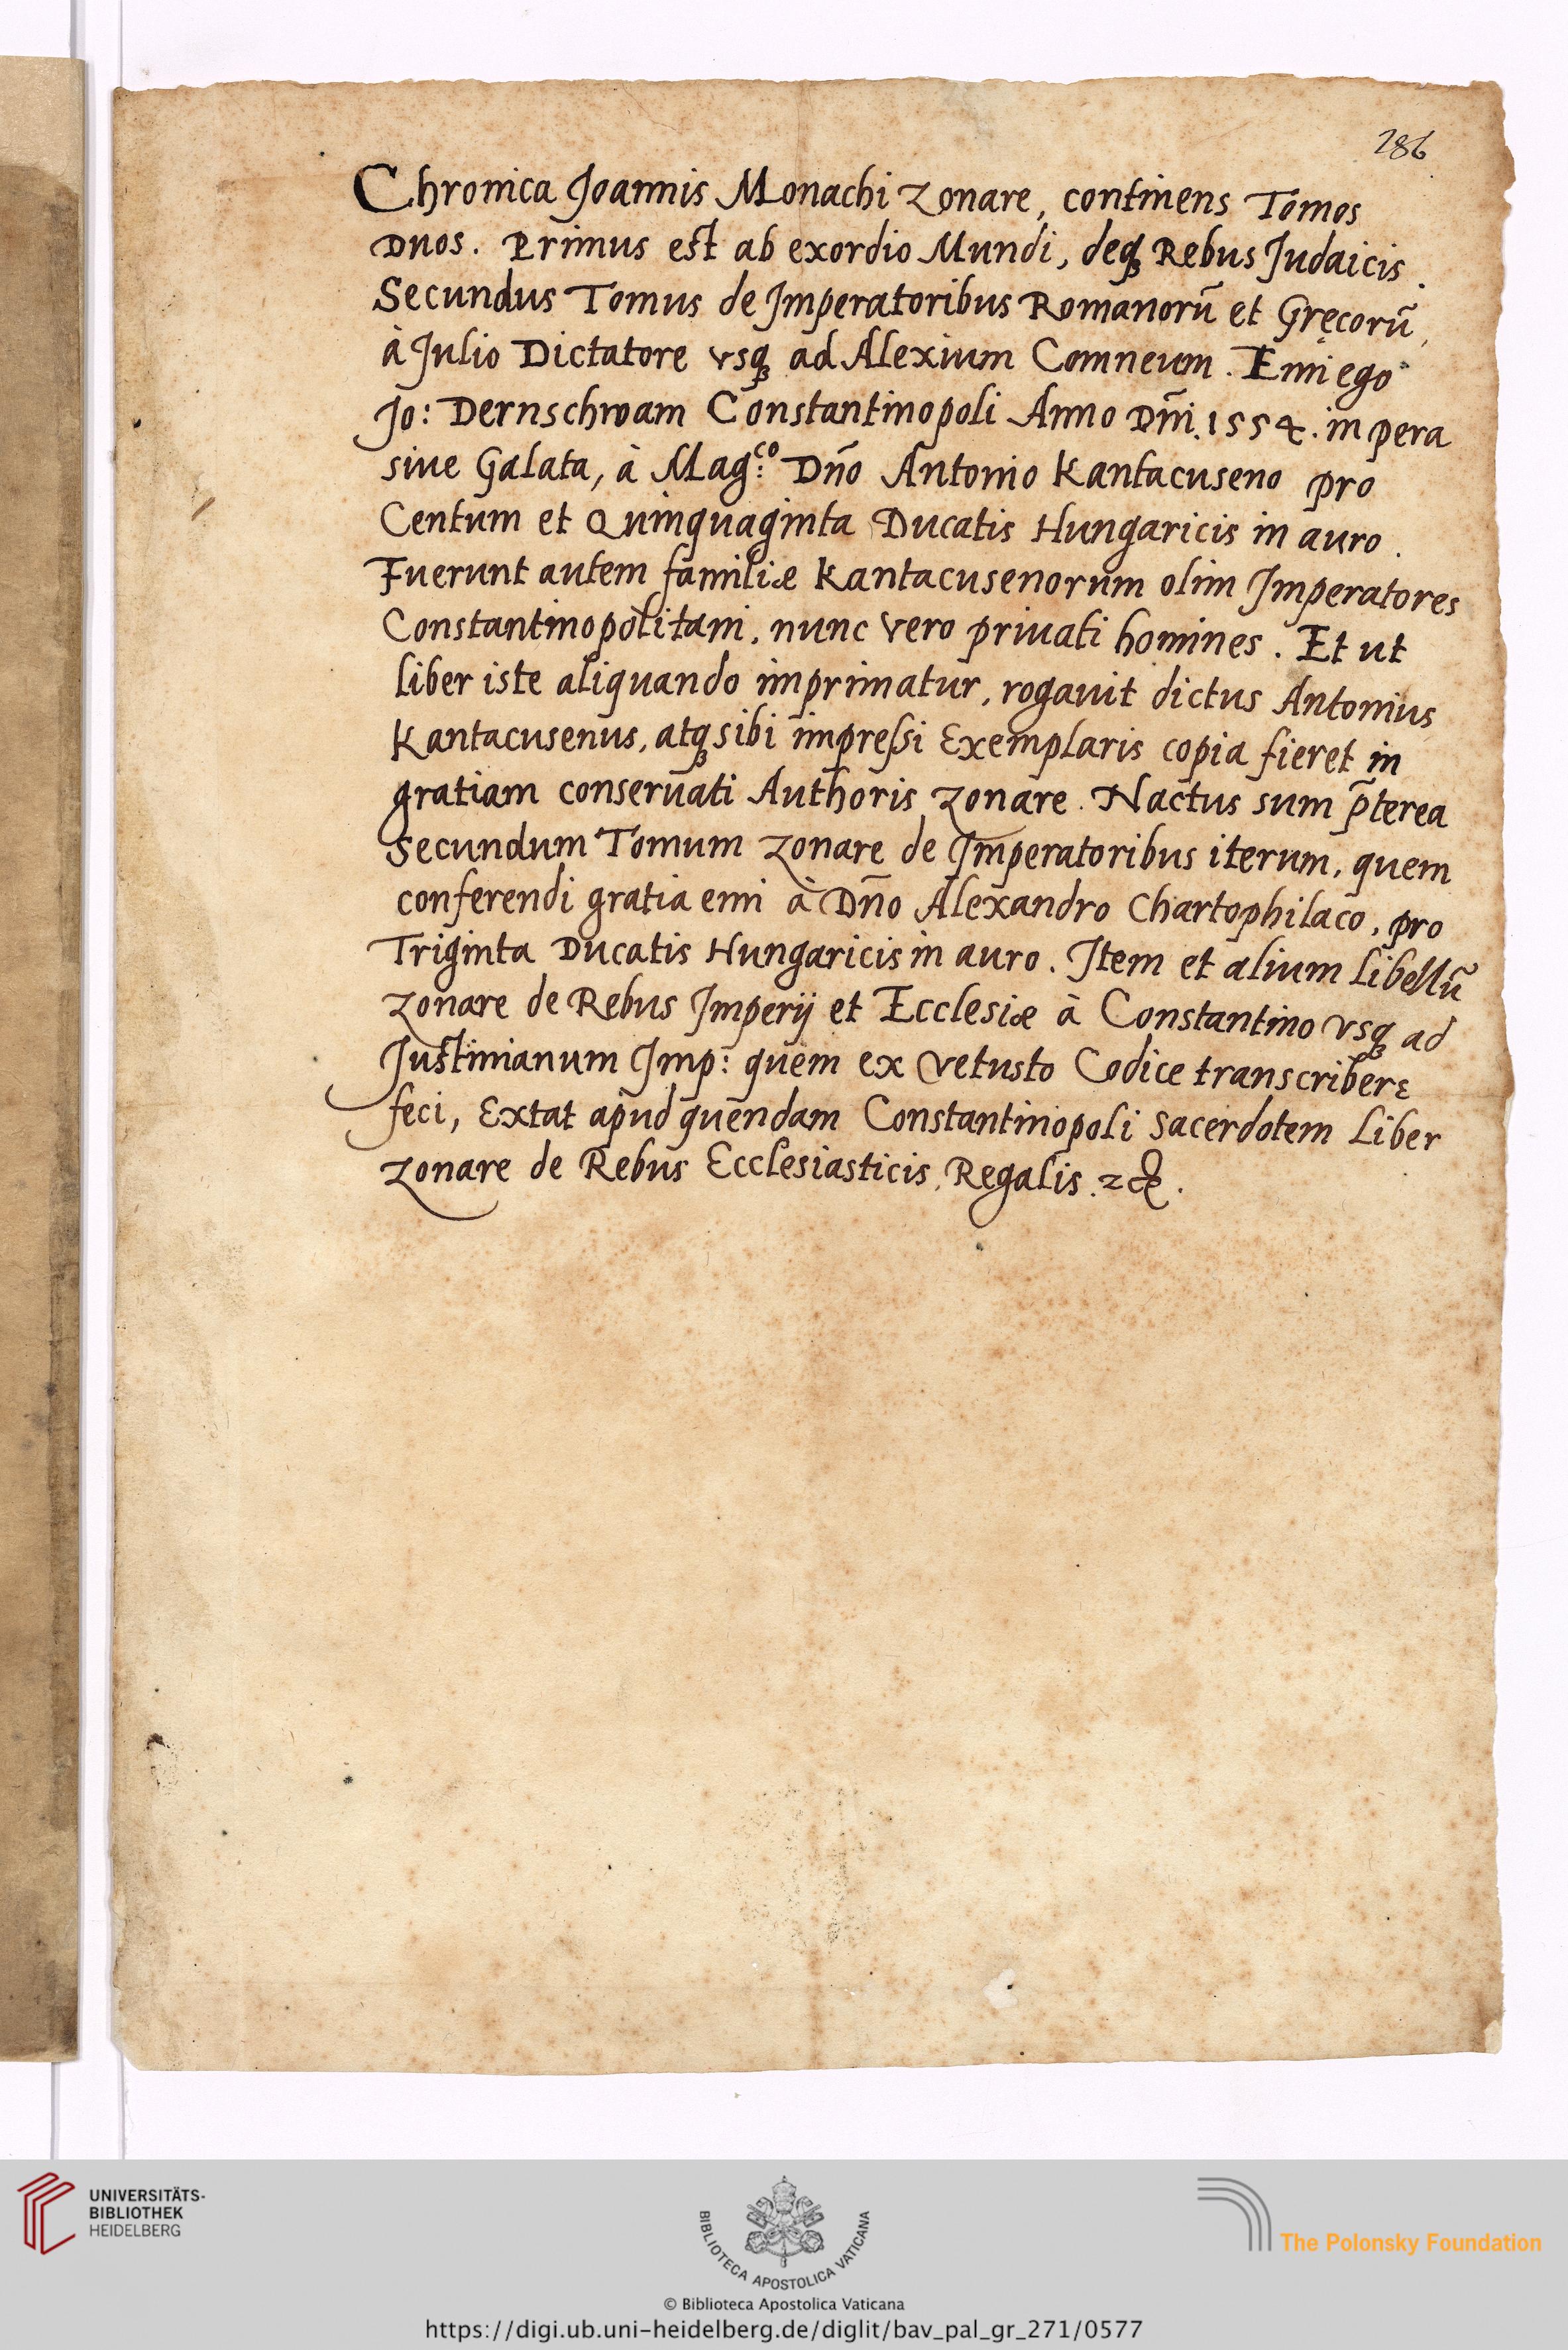 286
Chronica Joannis Monachi Zonare, continens Tomos
Duos. Primus est ab exordio Mundi, deqꝫ Rebus Judaicis.
Secundus Tomus de Imperatoribus Romanorū et Gręcorū,
à Julio Dictatore vsqꝫ ad Alexium Comneum. Emi ego
Jo: Dernschwam Constantinopoli Anno Dñi. 1554. in pera
siue Galata, à Mag:ᶜᵒ Dño Antonio Kantacuseno pro
Centum et Quinquaginta Ducatis Hungaricis in auro.
Fuerunt autem familiæ Kantacusenorum olim Imperatores
Constantinopolitani, nunc vero priuati homines. Et ut
liber iste aliquando imprimatur, rogauit dictus Antonius
Kantacusenus, atqꝫ sibi impreſsi Exemplaris copia fieret in
gratiam conseruati Authoris Zonare. Nactus sum p̄terea
Secundum Tomum Zonare de Imperatoribus iterum, quem
conferendi gratia emi à Dño Alexandro Chartophilaco, pro
Triginta Ducatis Hungaricis in auro. Item et alium libellū
Zonare de Rebus Imperij et Ecclesiæ à Constantino vsqꝫ ad
Justinianum Imp: quem ex vetusto Codice transcribere
feci, Extat apud quendam Constantinopoli Sacerdotem Liber
Zonare de Rebus Ecclesiasticis, Regalis.
UNIVERSITÄTS-
BIBLIOTHEK
HEIDELBERG
BIBLIOTECA APOSTOLICA VATICANA
© Biblioteca Apostolica Vaticana
The Polonsky Foundation
https://digi.ub.uni-heidelberg.de/diglit/bav_pal_gr_271/0577